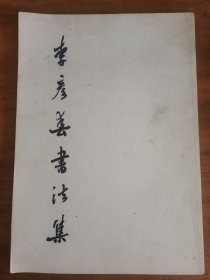 李彦春書法集